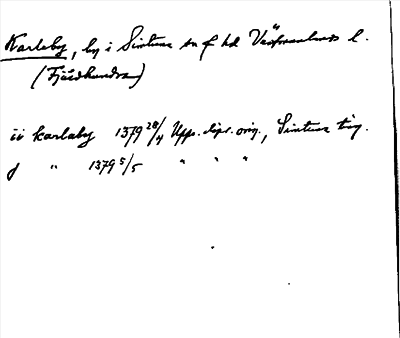 Karleby, by i Simtuna sn o f hd Västmanlands l.
(Fjärdhundra)
ii karlaby 1379 28/4 Upps. dipl. orig., Simtuna tig.
j " 1379 5/5 " " "